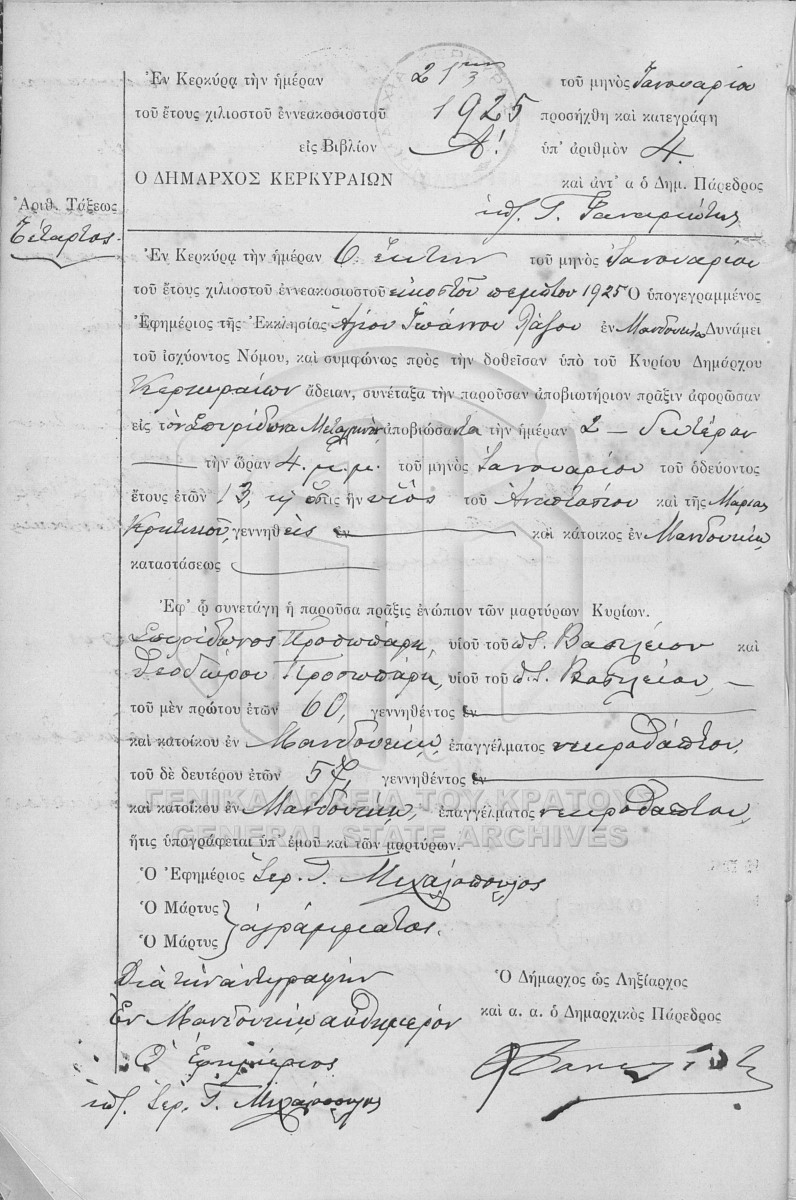 Ἐν Κερκύρᾳ τὴν ἡμέραν 21ην τοῦ μηνὸς Ἰανουαρίου
τοῦ ἔτους χιλιοστοῦ ἐννεακοσιοστοῦ 1925 προσήχθη καὶ κατεγράφη
εἰς Βιβλίον Α! ὑπ' ἀριθμὸν 4.
Ο ΔΗΜΑΡΧΟΣ ΚΕΡΚΥΡΑΙΩΝ καὶ ἀντ' α ὁ Δημ. Πάρεδρος
Ἀριθ. Τάξεως
Τέταρτος.
Ἐν Κερκύρᾳ τὴν ἡμέραν 6 ἕκτην τοῦ μηνὸς Ἰανουαρίου
τοῦ ἔτους χιλιοστοῦ ἐννεακοσιοστοῦ εἰκοστοῦ πέμπτου 1925 Ὁ ὑπογεγραμμένος
Ἐφημέριος τῆς Ἐκκλησίας Ἁγίου Ἰωάννου ἐν Μανδουκίῳ Δυνάμει
τοῦ ἰσχύοντος Νόμου, καὶ συμφώνως πρὸς τὴν δοθεῖσαν ὑπὸ τοῦ Κυρίου Δημάρχου
Κερκυραίων ἄδειαν, συνέταξα τὴν παροῦσαν ἀποβιωτήριον πρᾶξιν ἀφορῶσαν
εἰς τὸν Σπυρίδωνα ἀποβιώσαντα τὴν ἡμέραν 2 – δευτέραν
τὴν ὥραν 4. μ.μ. τοῦ μηνὸς Ἰανουαρίου τοῦ ὁδεύοντος
ἔτους ἐτῶν 13, ὅστις ἦν υἱὸς τοῦ Ἀναστασίου καὶ τῆς Μαρίας
γεννηθεὶς ἐν καὶ κάτοικος ἐν Μανδουκίῳ
καταστάσεως
Ἐφ' ᾧ συνετάγη ἡ παροῦσα πρᾶξις ἐνώπιον τῶν μαρτύρων Κυρίων.
Σπυρίδωνος Προσωπάρη, υἱοῦ τοῦ Βασιλείου καὶ
Θεοδώρου Προσωπάρη, υἱοῦ τοῦ Βασιλείου, –
τοῦ μὲν πρώτου ἐτῶν 60, γεννηθέντος ἐν
καὶ κατοίκου ἐν Μανδουκίῳ, ἐπαγγέλματος νεκροθάπτου,
τοῦ δὲ δευτέρου ἐτῶν 57, γεννηθέντος ἐν
καὶ κατοίκου ἐν Μανδουκίῳ, ἐπαγγέλματος νεκροθάπτου,
ΓΕΝΙΚΑ ΑΡΧΕΙΑ ΤΟΥ ΚΡΑΤΟΥΣ
GENERAL STATE ARCHIVES
ἥτις ὑπογράφεται ὑπ' ἐμοῦ καὶ τῶν μαρτύρων.
Ὁ Ἐφημέριος Ἱερ. Γ. Μιχαλόπουλος
Ὁ Μάρτυς
Ὁ Μάρτυς ἀγράμματος.
Διὰ τὴν ἀντιγραφὴν
Ἐν Μανδουκίῳ αὐθημερόν
Ὁ Ἐφημέριος
Ἱερ. Γ. Μιχαλόπουλος
Ὁ Δήμαρχος ὡς Ληξίαρχος
καὶ α. α. ὁ Δημαρχικὸς Πάρεδρος